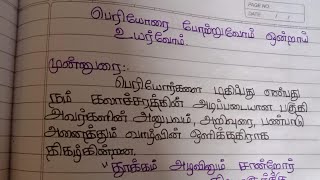 PAGE NO
DATE
பெரியோரை போற்றுவோம் ஒன்றாய்
உயர்வோம்.
முன்னுரை:-
பெரியோர்களை மதிப்பது என்பது
நம் கலாச்சாரத்தின் அடிப்படையான பகுதி
அவர்களின் அனுபவம், அறிவுரை, பண்பாடு
அனைத்தும் வாழ்வின் ஒளிக்கதிராக
திகழ்கின்றன.
"தூக்கம் அடிவினும் சான்றோர்